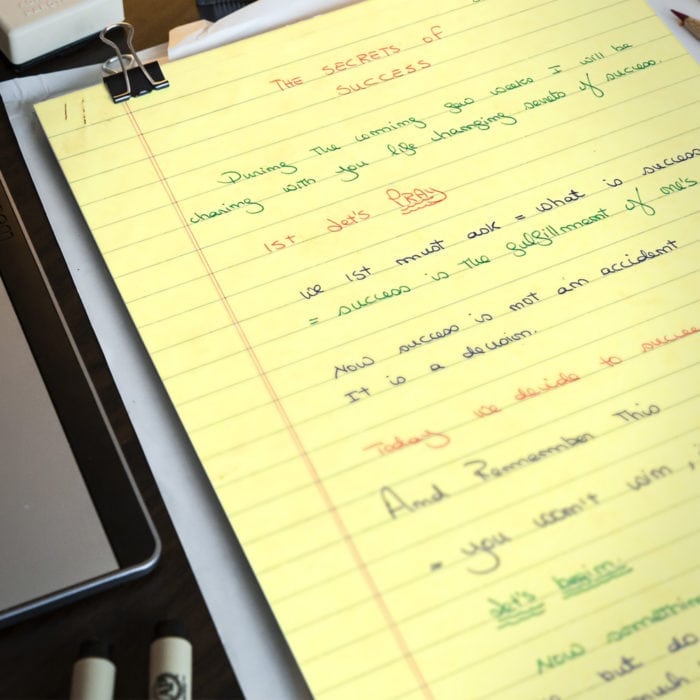 THE SECRETS OF
SUCCESS
During The comming few weeks I will be
charing with you life changing secrets of success.
1st Let's PRAY
we 1st must ask = what is success
= success is the fulfillment of one's
Now success is not an accident
It is a decision.
Today we decide to succee
And Remember This
= you won't win, i
Let's begin.
Now something
but do